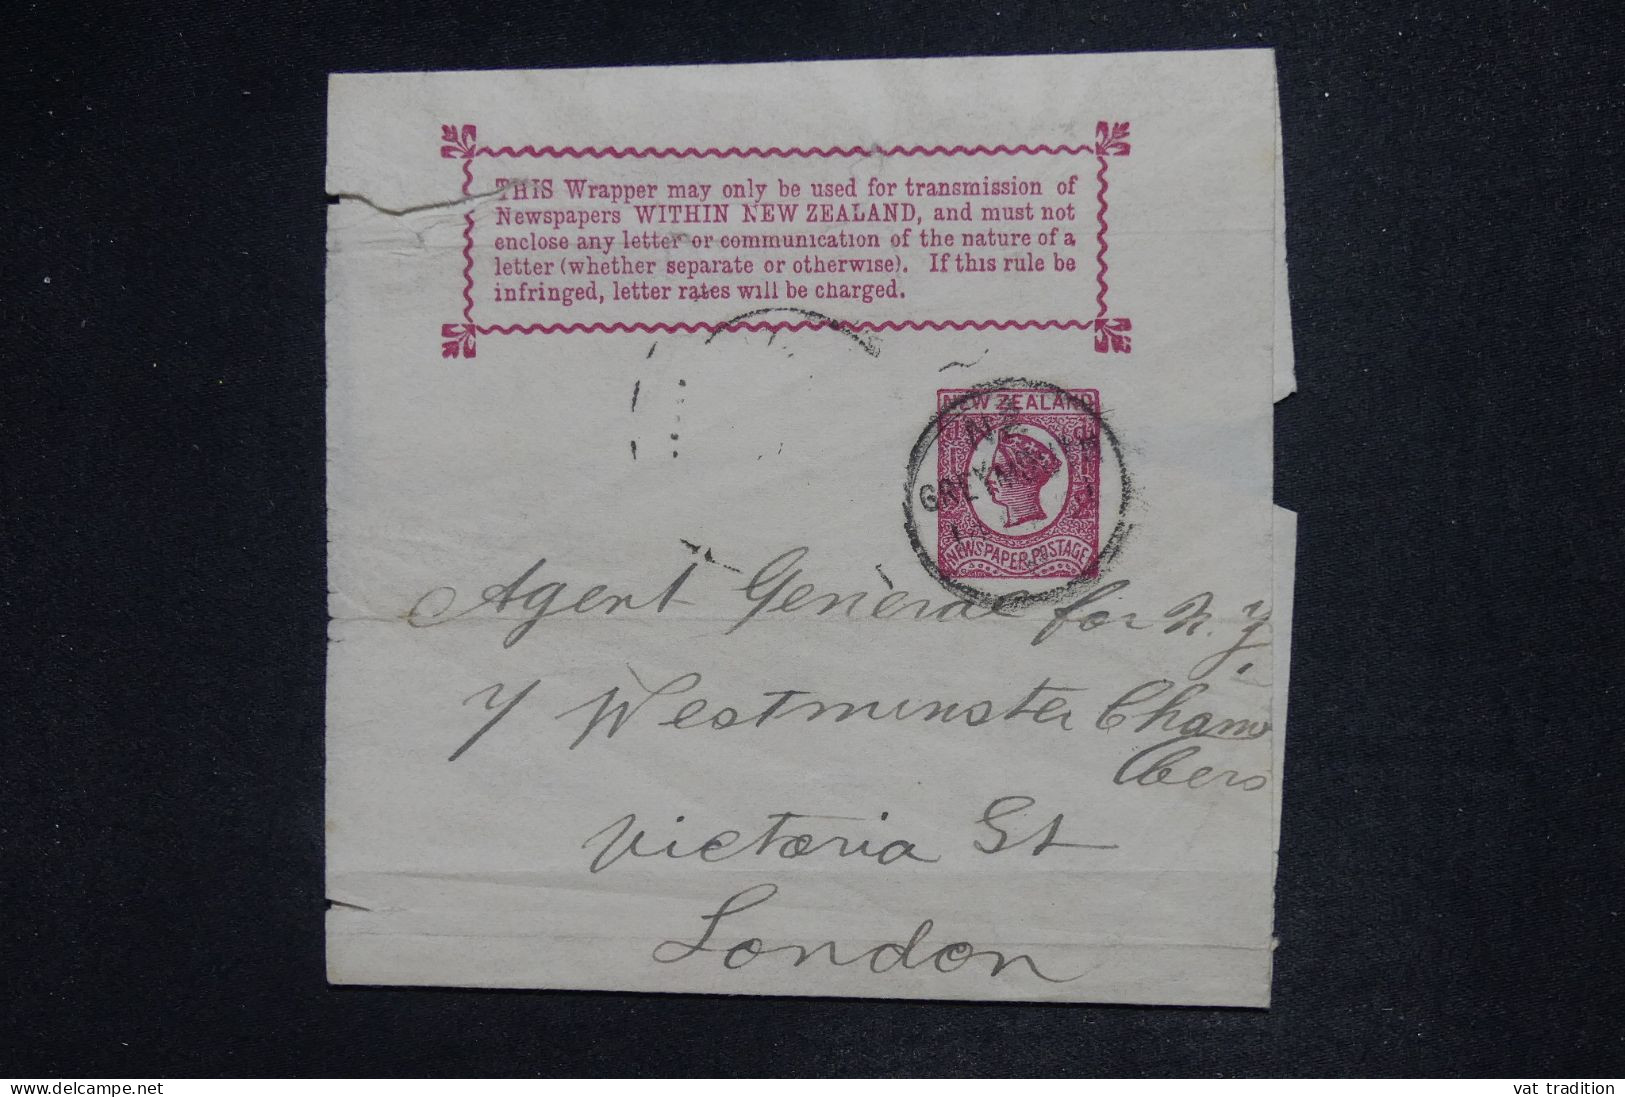 THIS Wrapper may only be used for transmission of
Newspapers WITHIN NEW ZEALAND, and must not
enclose any letter or communication of the nature of a
letter (whether separate or otherwise). If this rule be
infringed, letter rates will be charged.
NEW ZEALAND
N.Z.
GREYMOUTH
NEWSPAPER POSTAGE
Agent General for N.Z.
7 Westminster Cham
bers
Victoria St
London
www.delcampe.net
vat tradition